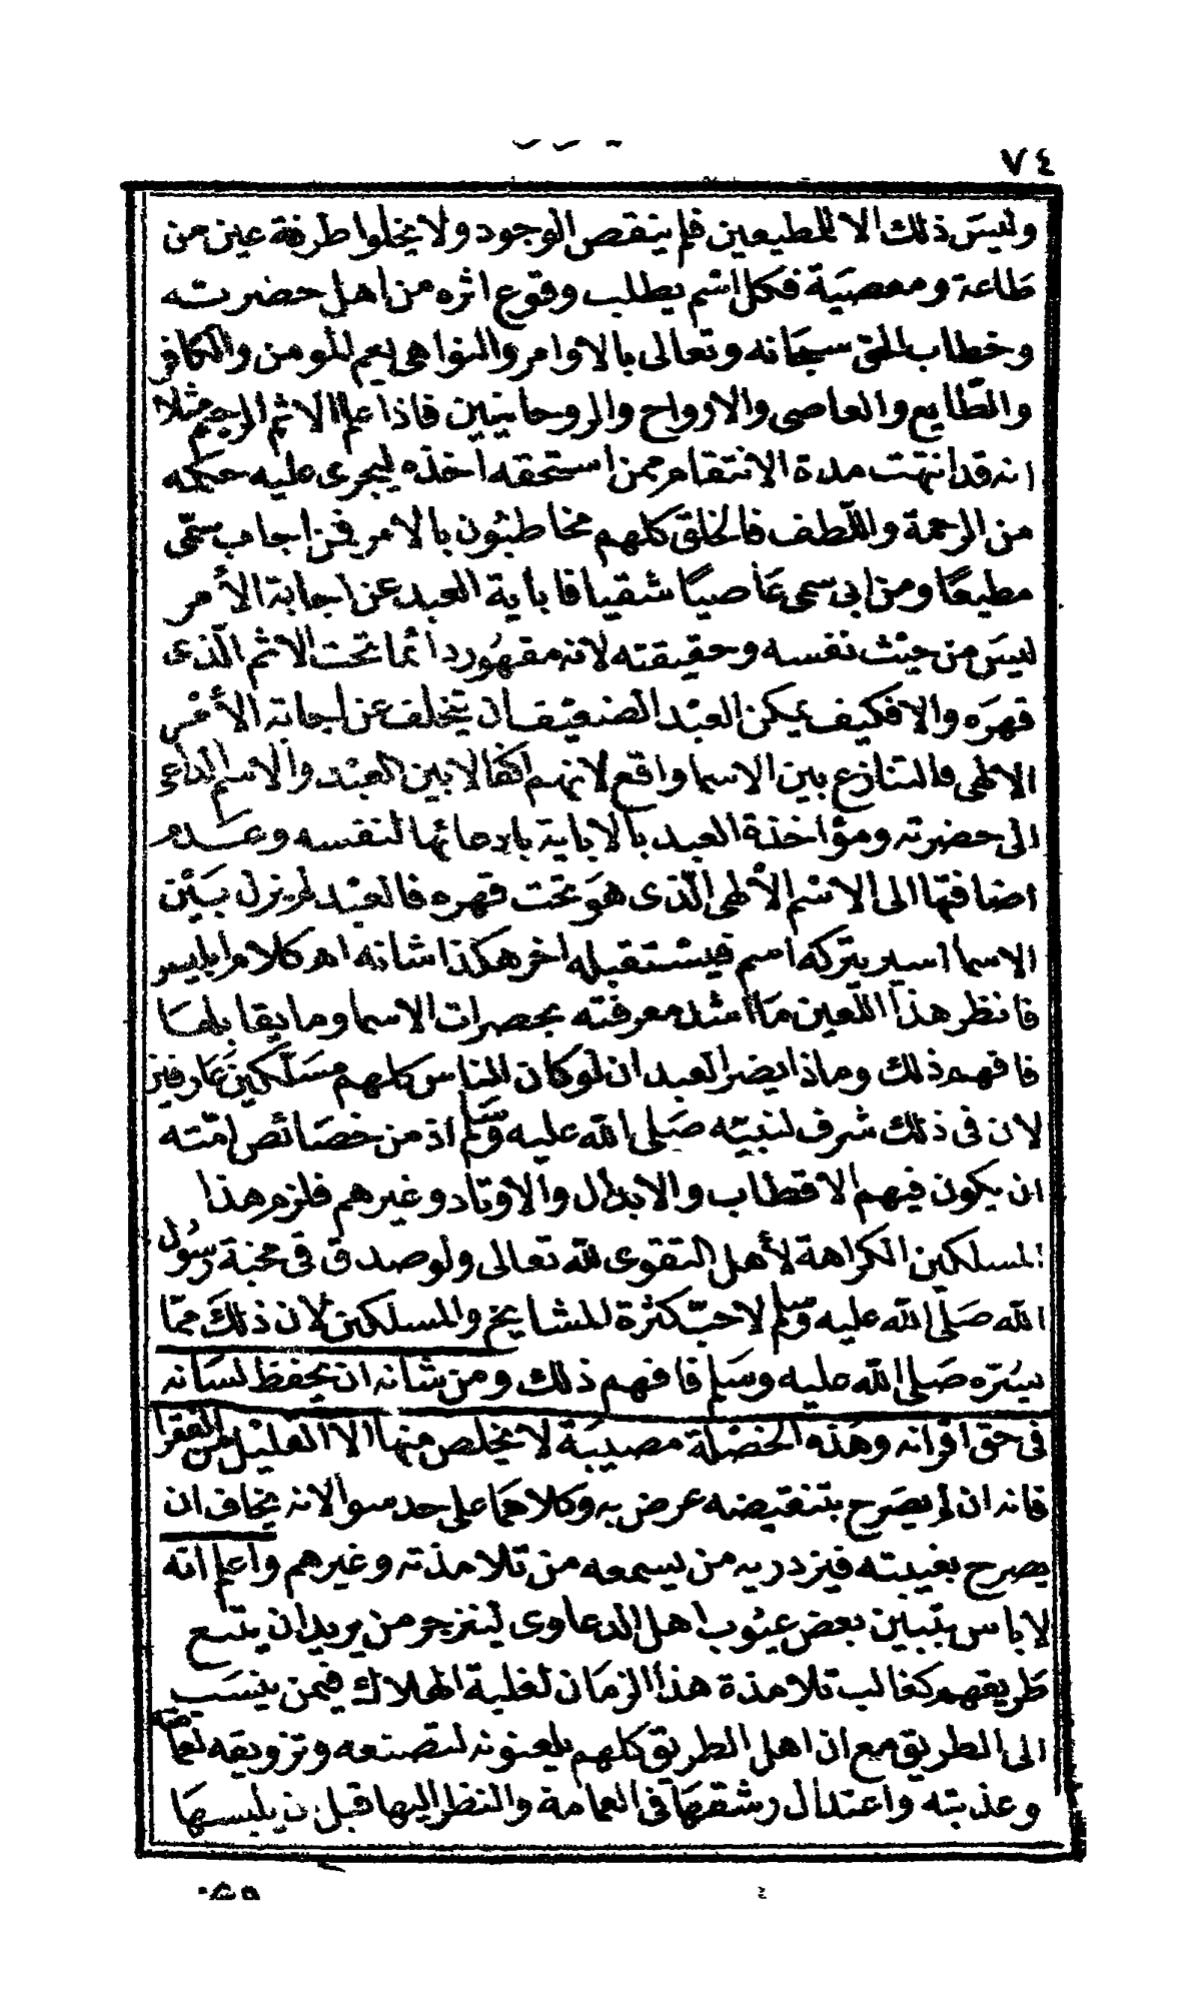 ٧٤
وليس ذلك الا للمطيعين فلم ينقص الوجود ولا يخلوا طرفة عين من
طاعة ومعصية فكل اسم يطلب وقوع اثره من اهل حضرته
وخطاب الحق سبحانه وتعالى بالاوامر والنواهى يعم المومن والكافر
والطايع والعاصى والارواح والروحانيين فاذا علم الاسم الرحيم مثلا
انه قد انتهت مدة الانتقام ممن استحقه اخذه ليجرى عليه حكمه
من الرحمة واللطف فالخلق كلهم مخاطبون بالامر فمن اجاب سمى
مطيعا ومن ابى سمى عاصيا شقيا فاباية العبد عن اجابة الأمر
ليس من حيث نفسه وحقيقته لانه مقهور دائما تحت الاسم الذى
قهره والا فكيف يمكن العبد الضعيف ان يتخلف عن اجابة الأمر
الالهى فالتنازع بين الاسما واقع لانهم اكفا لا بين العبد والاسم الداعى
الى حضرته ومؤاخذة العبد بالاباية بادعائها لنفسه وعدم
اضافتها الى الاسم الألهى الذى هو تحت قهره فالعبد لم يزل بين
الاسما اسير يتركه اسم فيستقبله اخر هكذا شانه اهـ كلام ابليس
فانظر هذا اللعين ما اشد معرفته بحضرات الاسما وما يقابلها
فافهم ذلك وماذا يضر العبد ان لو كان الناس كلهم مسلكين عارفين
لان فى ذلك شرف لنبيه صلى الله عليه وسلم اذ من خصائص امته
ان يكون فيهم الاقطاب والابدال والاوتاد وغيرهم فلزم هذا
المسلكين الكراهة لأهل التقوى لله تعالى ولو صدق فى محبة رسول
الله صلى الله عليه وسلم لاحب كثرة للمشايخ والمسلكين لان ذلك مما
يسره صلى الله عليه وسلم فافهم ذلك ومن شانه ان يحفظ لسانه
فى حق اقرانه وهذه الخصلة مصيبة لا يخلص منها الا القليل من الفقرا
فانه ان لم يصرح بتنقيصه عرض به وكلاهما على حد سوا لانه يخاف ان
يصرح بغيبته فيزدريه من يسمعه من تلامذته وغيرهم واعلم انه
لا باس بتبيين بعض عيوب اهل الدعاوى لينزجر من يريد ان يتبع
طريقهم كغالب تلامذة هذا الزمان لغلبة الهلاك فيمن ينسب
الى الطريق مع ان اهل الطريق كلهم يلعنونه لتصنعه وتزويقه لعمامته
وعذبته واعتدال رشقها فى العمامة والنظر اليها قبل ان يلبسها